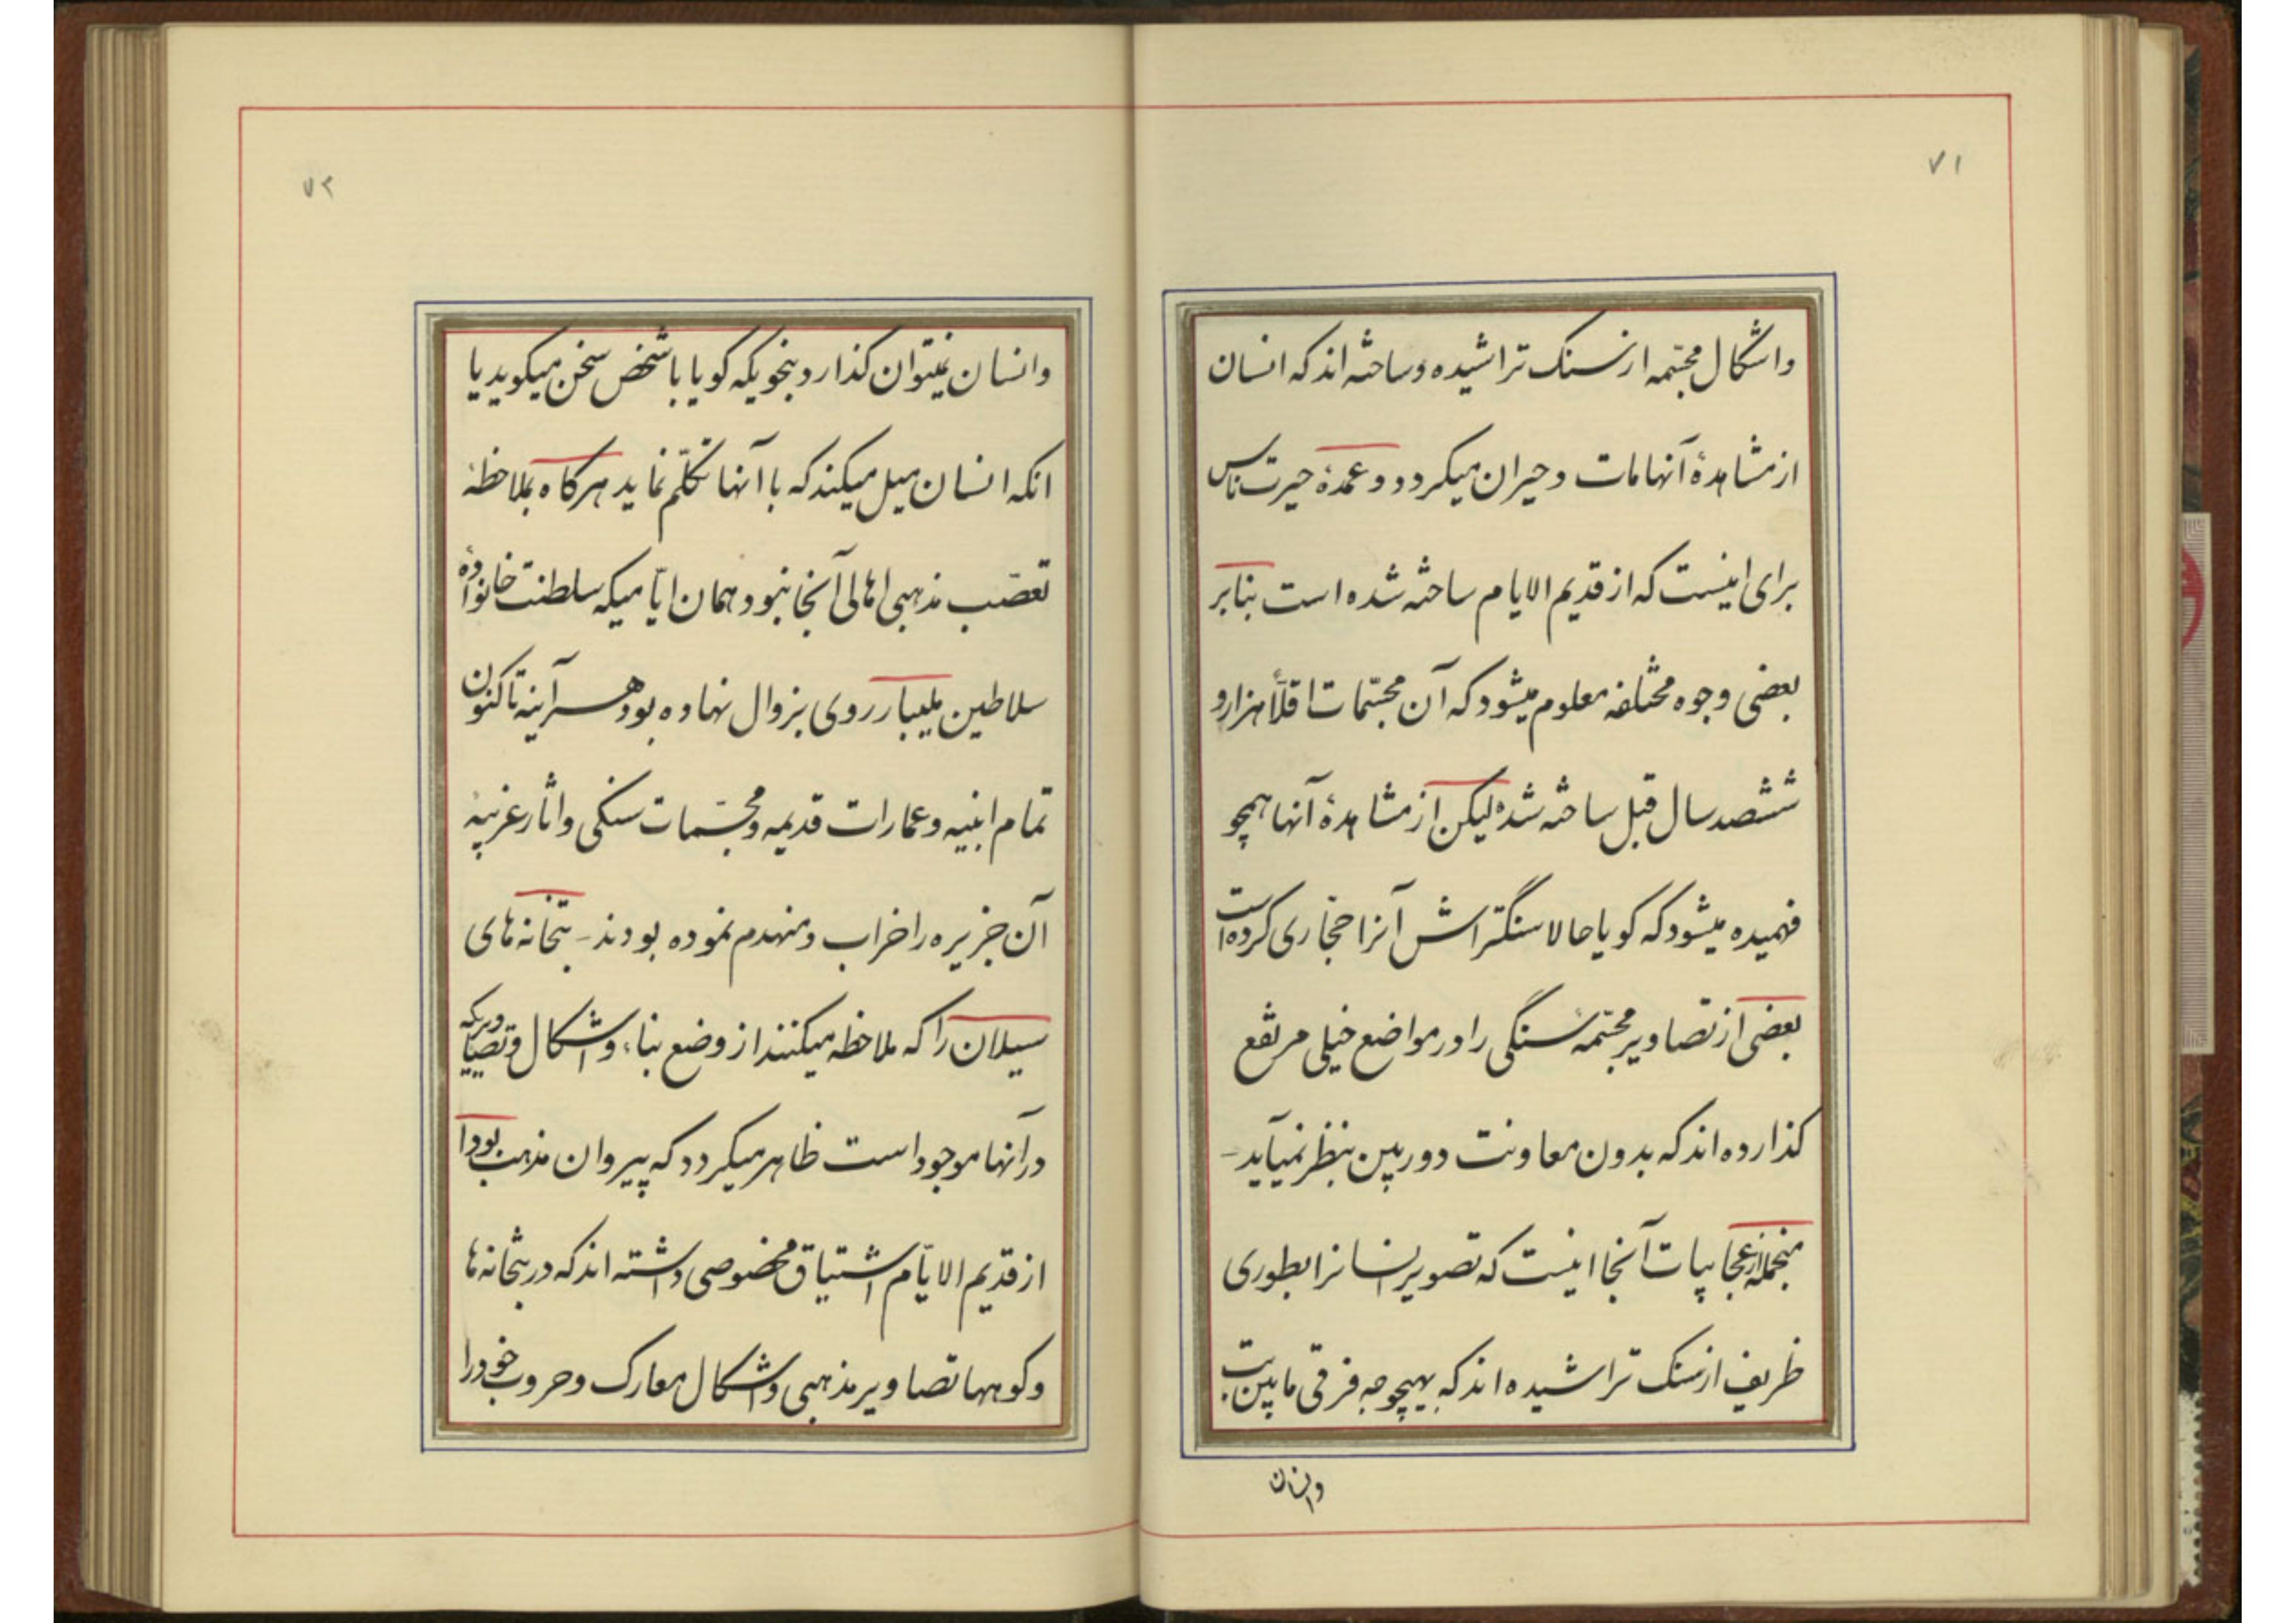 ۷۱
واشکال مجسّمه از سنک تراشیده و ساخته اند که انسان
از مشاهدهٔ آنها مات و حیران میکردد و عمدهٔ حیرت ناس
برای اینست که از قدیم الایام ساخته شده است بنابر
بعضی وجوه مختلفه معلوم میشود که آن مجسّمات اقلاً هزار و
ششصد سال قبل ساخته شده لیکن از مشاهدهٔ آنها همچو
فهمیده میشود که کویا حالا سنگتراش آنرا حجّاری کرده است
بعضی از تصاویر مجسّمهٔ سنگی را در مواضع خیلی مرتفع
کذارده اند که بدون معاونت دوربین بنظر نمیآید -
منجمله از عجایبات آنجا اینست که تصویر انسانرا بطوری
ظریف از سنک تراشیده اند که بهیچوجه فرقی مابین بت
وانسان
۷۲
وانسان نمیتوان کذارد بنحویکه کویا با شخص سخن میکوید یا
انکه انسان میل میکند که با آنها تکلّم نماید هرکاه بملاحظهٔ
تعصّب مذهبی اهالی آنجا نبود همان ایّامیکه سلطنت خانوادهٔ
سلاطین ملیبار روی بزوال نهاده بود هرآینه تاکنون
تمام ابنیه و عمارات قدیمه و مجسّمات سنکی و اثار غریبهٔ
آن جزیره را خراب و منهدم نموده بودند - بتخانه های
سیلان را که ملاحظه میکنند از وضع بناء و اشکال و تصاویریکه
در آنها موجود است ظاهر میکردد که پیروان مذهب بودا
از قدیم الایّام اشتیاق مخصوصی داشته اند که در بتخانه ها
و کوهها تصاویر مذهبی و اشکال معارک و حروب خود را